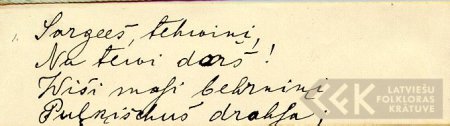 1. Sargees, tehwini,
Nu tewi darš!
Wiši masi behrnini
Pulkischus drahsa;
LATVIEŠU
FOLKLORAS
KRĀTUVE